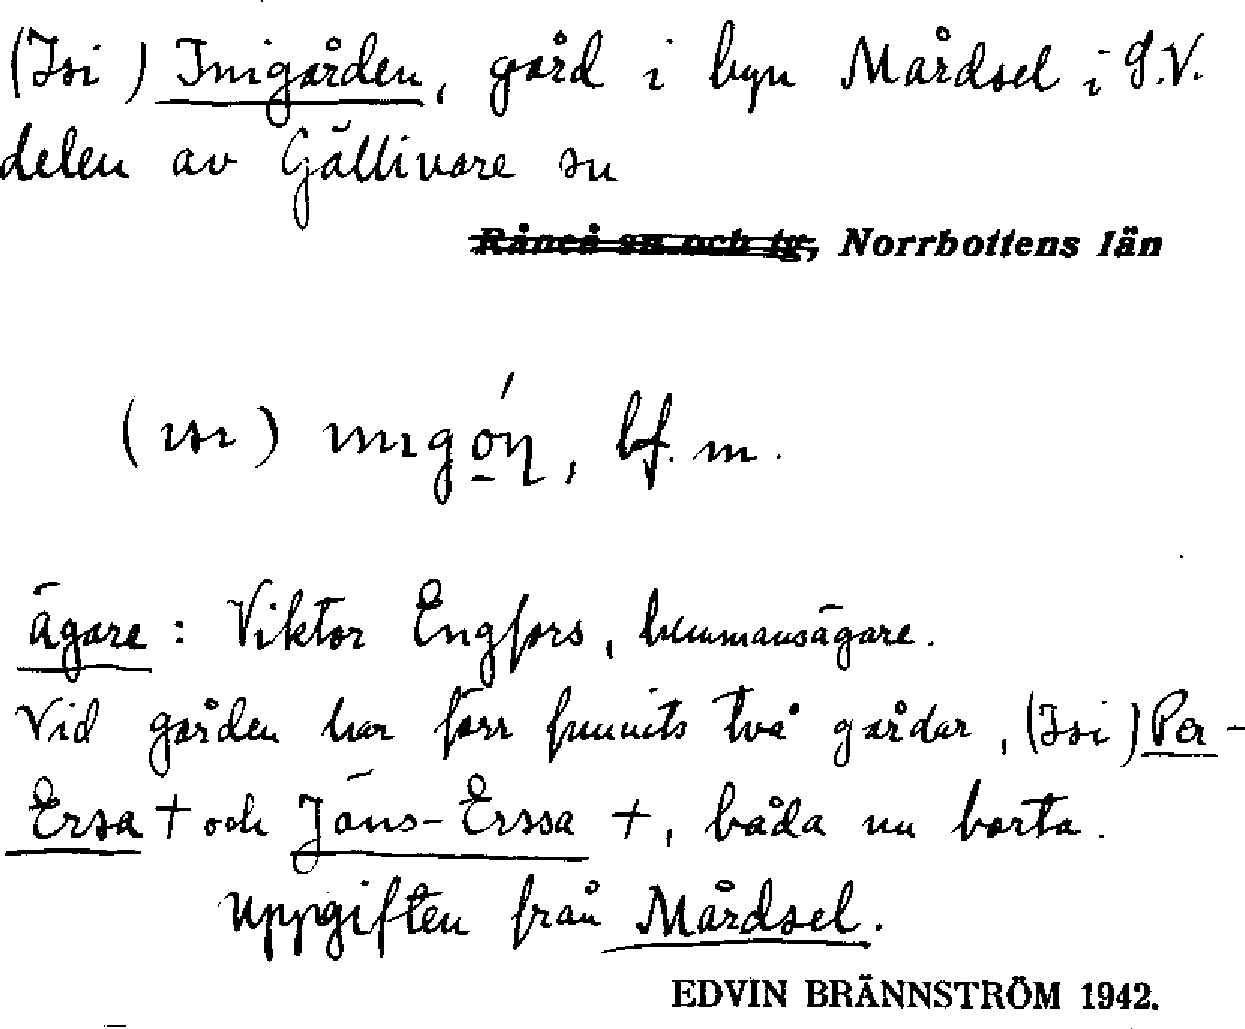 (Isi) Inigården, gård i byn Mårdsel i S.V.
delen av Gällivare sn
Råneå sn och tg, Norrbottens län
(ısı) ınıgǫ́n, bf. m.
ägare: Viktor Engfors, hemmansägare.
Vid gården har förr funnits två gårdar, (Isi) Per-
Ersa + och Jäns-Erssa +, båda nu borta.
Uppgiften från Mårdsel.
EDVIN BRÄNNSTRÖM 1942.